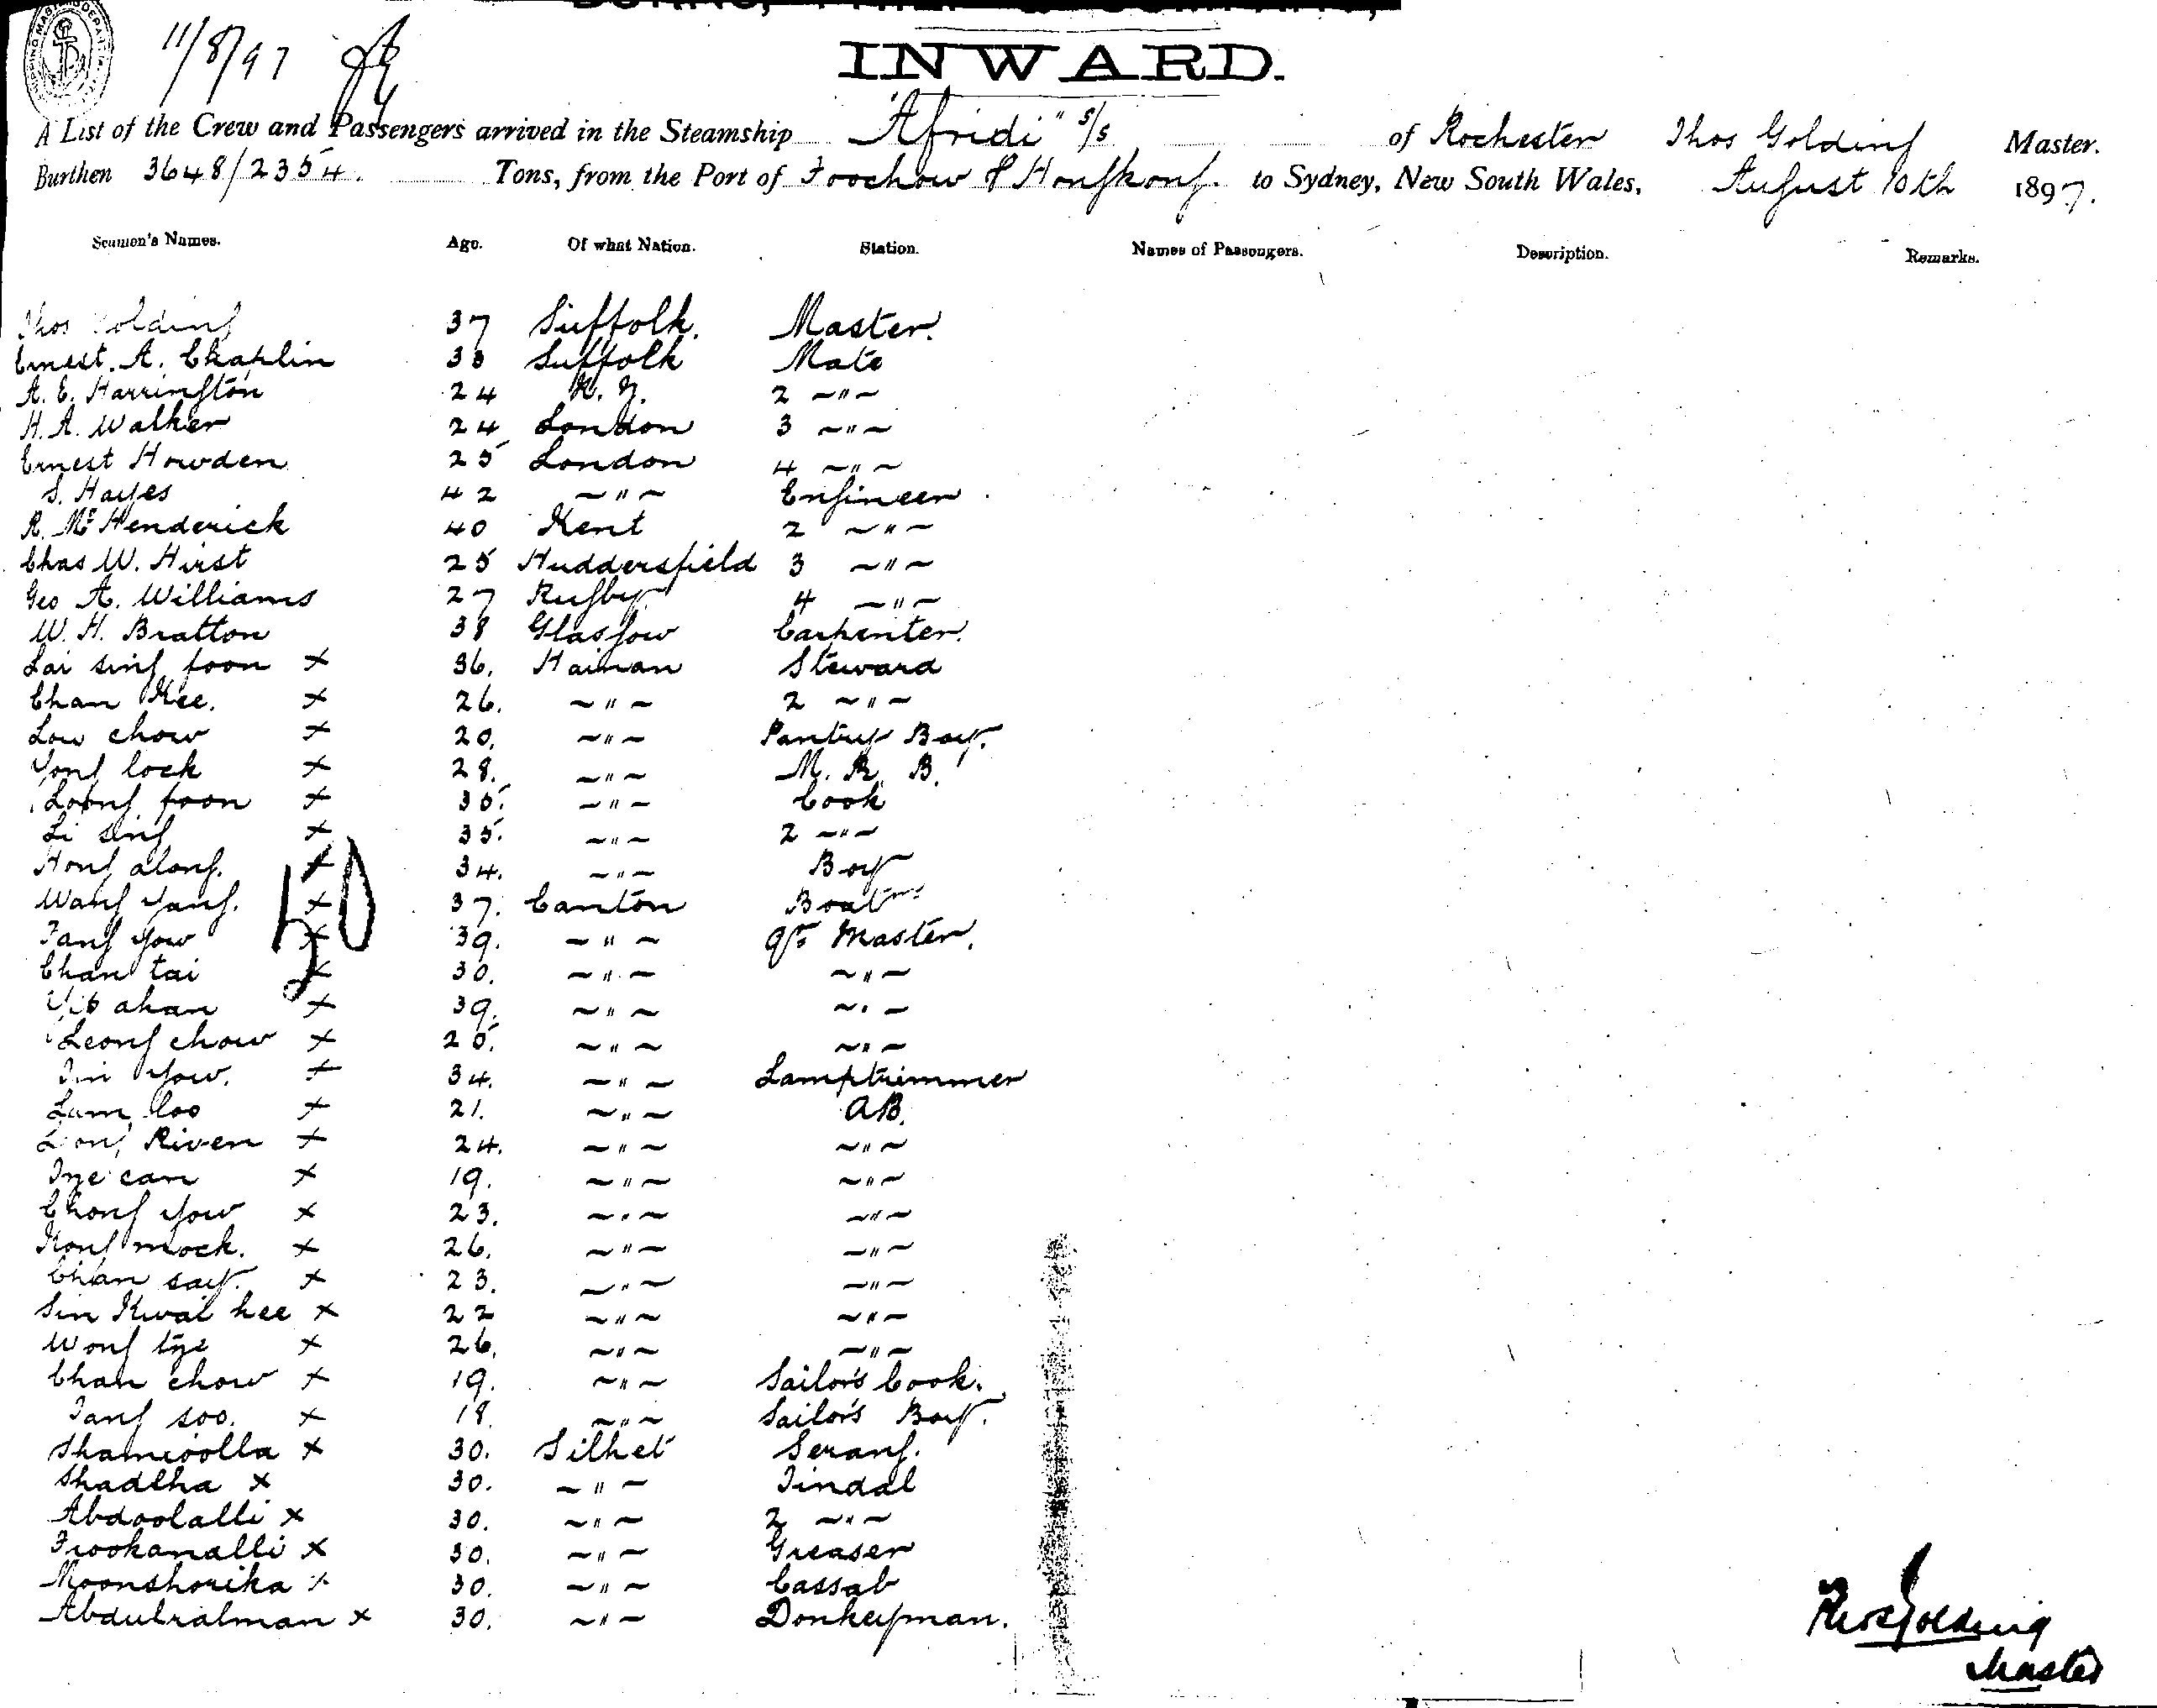 11/8/97
INWARD.
A List of the Crew and Passengers arrived in the Steamship "Afridi" s/s of Rochester Thos Golding Master.
Burthen 3648/2354. Tons, from the Port of Foochow & Hongkong. to Sydney, New South Wales, August 10th 1897.
Seamen's Names. Age. Of what Nation. Station. Names of Passengers. Description. Remarks.
Thos Golding 37 Suffolk. Master.
Ernest. A. Chaplin 33 Suffolk Mate
A. E. Harrington 24 N. Z. 2 ~"~
H. A. Walker 24 London 3 ~"~
Ernest Howden 25 London 4 ~"~
S. Hayes 42 ~"~ Engineer
R. Mc Henderick 40 Kent 2 ~"~
Chas W. Hirst 25 Huddersfield 3 ~"~
Geo A. Williams 27 Rugby 4 ~"~
W. H. Bratton 38 Glasgow Carpenter.
Lai sing foon x 36. Hainan Steward
Chan Kee. x 26. ~"~ 2 ~"~
Low chow x 20. ~"~ Pantry Boy.
Yong lock x 28. ~"~ M. R. B.
Loong foon x 35. ~"~ Cook
Li sing x 35. ~"~ 2 ~"~
Hong along. x 34. ~"~ Boy
Wang yang. x 37. Canton Boatsn
50
Tang yow x 39. ~"~ qr Master.
Chan tai x 30. ~"~ ~"~
Yip ahan x 39. ~"~ ~"~
Leong chow x 25. ~"~ ~"~
Yow. x 34. ~"~ Lamptrimmer
Lum loo x 21. ~"~ AB.
Riven x 24. ~"~ ~"~
can x 19. ~"~ ~"~
Chong yow x 23. ~"~ ~"~
Kong mock. x 26. ~"~ ~"~
Chan say. x 23. ~"~ ~"~
Sin Kwai kee x 22 ~"~ ~"~
Wong tye x 26. ~"~ ~"~
Chan chow x 19. ~"~ Sailor's Cook.
Tang soo. x 18. ~"~ Sailor's Boy.
Shamioolla x 30. Silhet Serang.
Shadlha x 30. ~"~ Tindal
Abdoolalli x 30. ~"~ 2 ~"~
Frookanalli x 30. ~"~ Greaser
Moonshorika x 30. ~"~ Cassab
Abdulralman x 30. ~"~ Donkeyman.
Thos Golding
Master